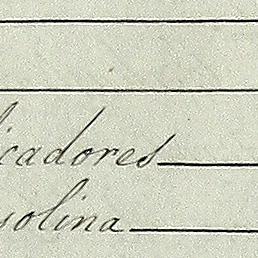 icadores
solina